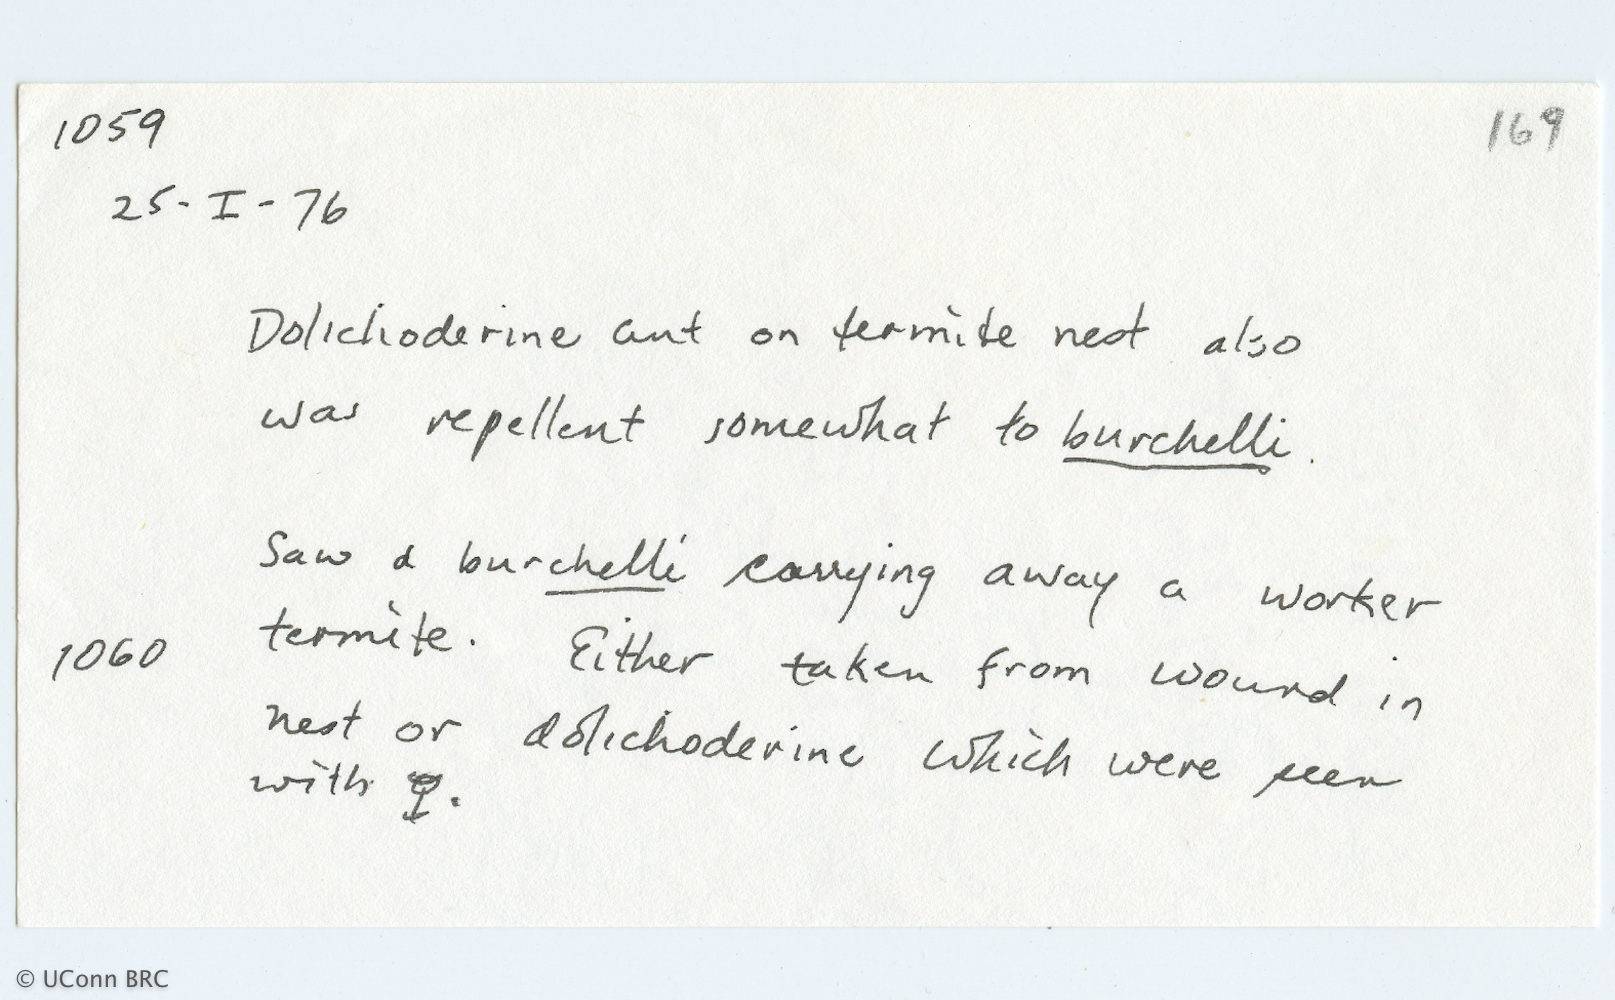 1059
169
25-I-76
Dolichoderine ant on termite nest also
was repellent somewhat to burchelli.
Saw a burchelli carrying away a worker
1060
termite. Either taken from wound in
nest or dolichoderine which were seen
with ☿.
© UConn BRC